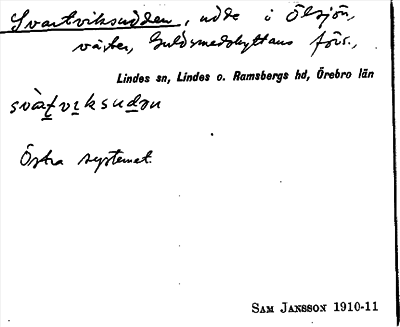 Svartviksudden, udde i Ölsjön,
väster, Guldsmedshyttans förs.,
Lindes sn, Lindes o. Ramsbergs hd, Örebro län
svàt̲vi̲ksud̲ǝn
Östra systemet.
SAM JANSSON 1910-11